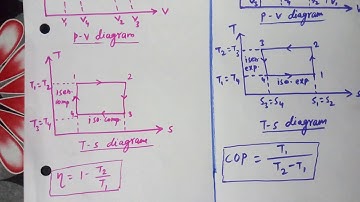 V₁ V₄ V₂ V₃ V
P-V diagram
T
T₁=T₂
1 2
isen comp.
T₃=T₄
4 3
iso. comp.
S
T-S diagram
η = 1 - T₂/T₁
V
P-V diagram
T
T₂ = T₃
3 2
isen. exp.
T₁=T₄
4 1
iso. exp.
S₃=S₄ S₁=S₂ S
T-S diagram
COP = T₁/(T₂-T₁)